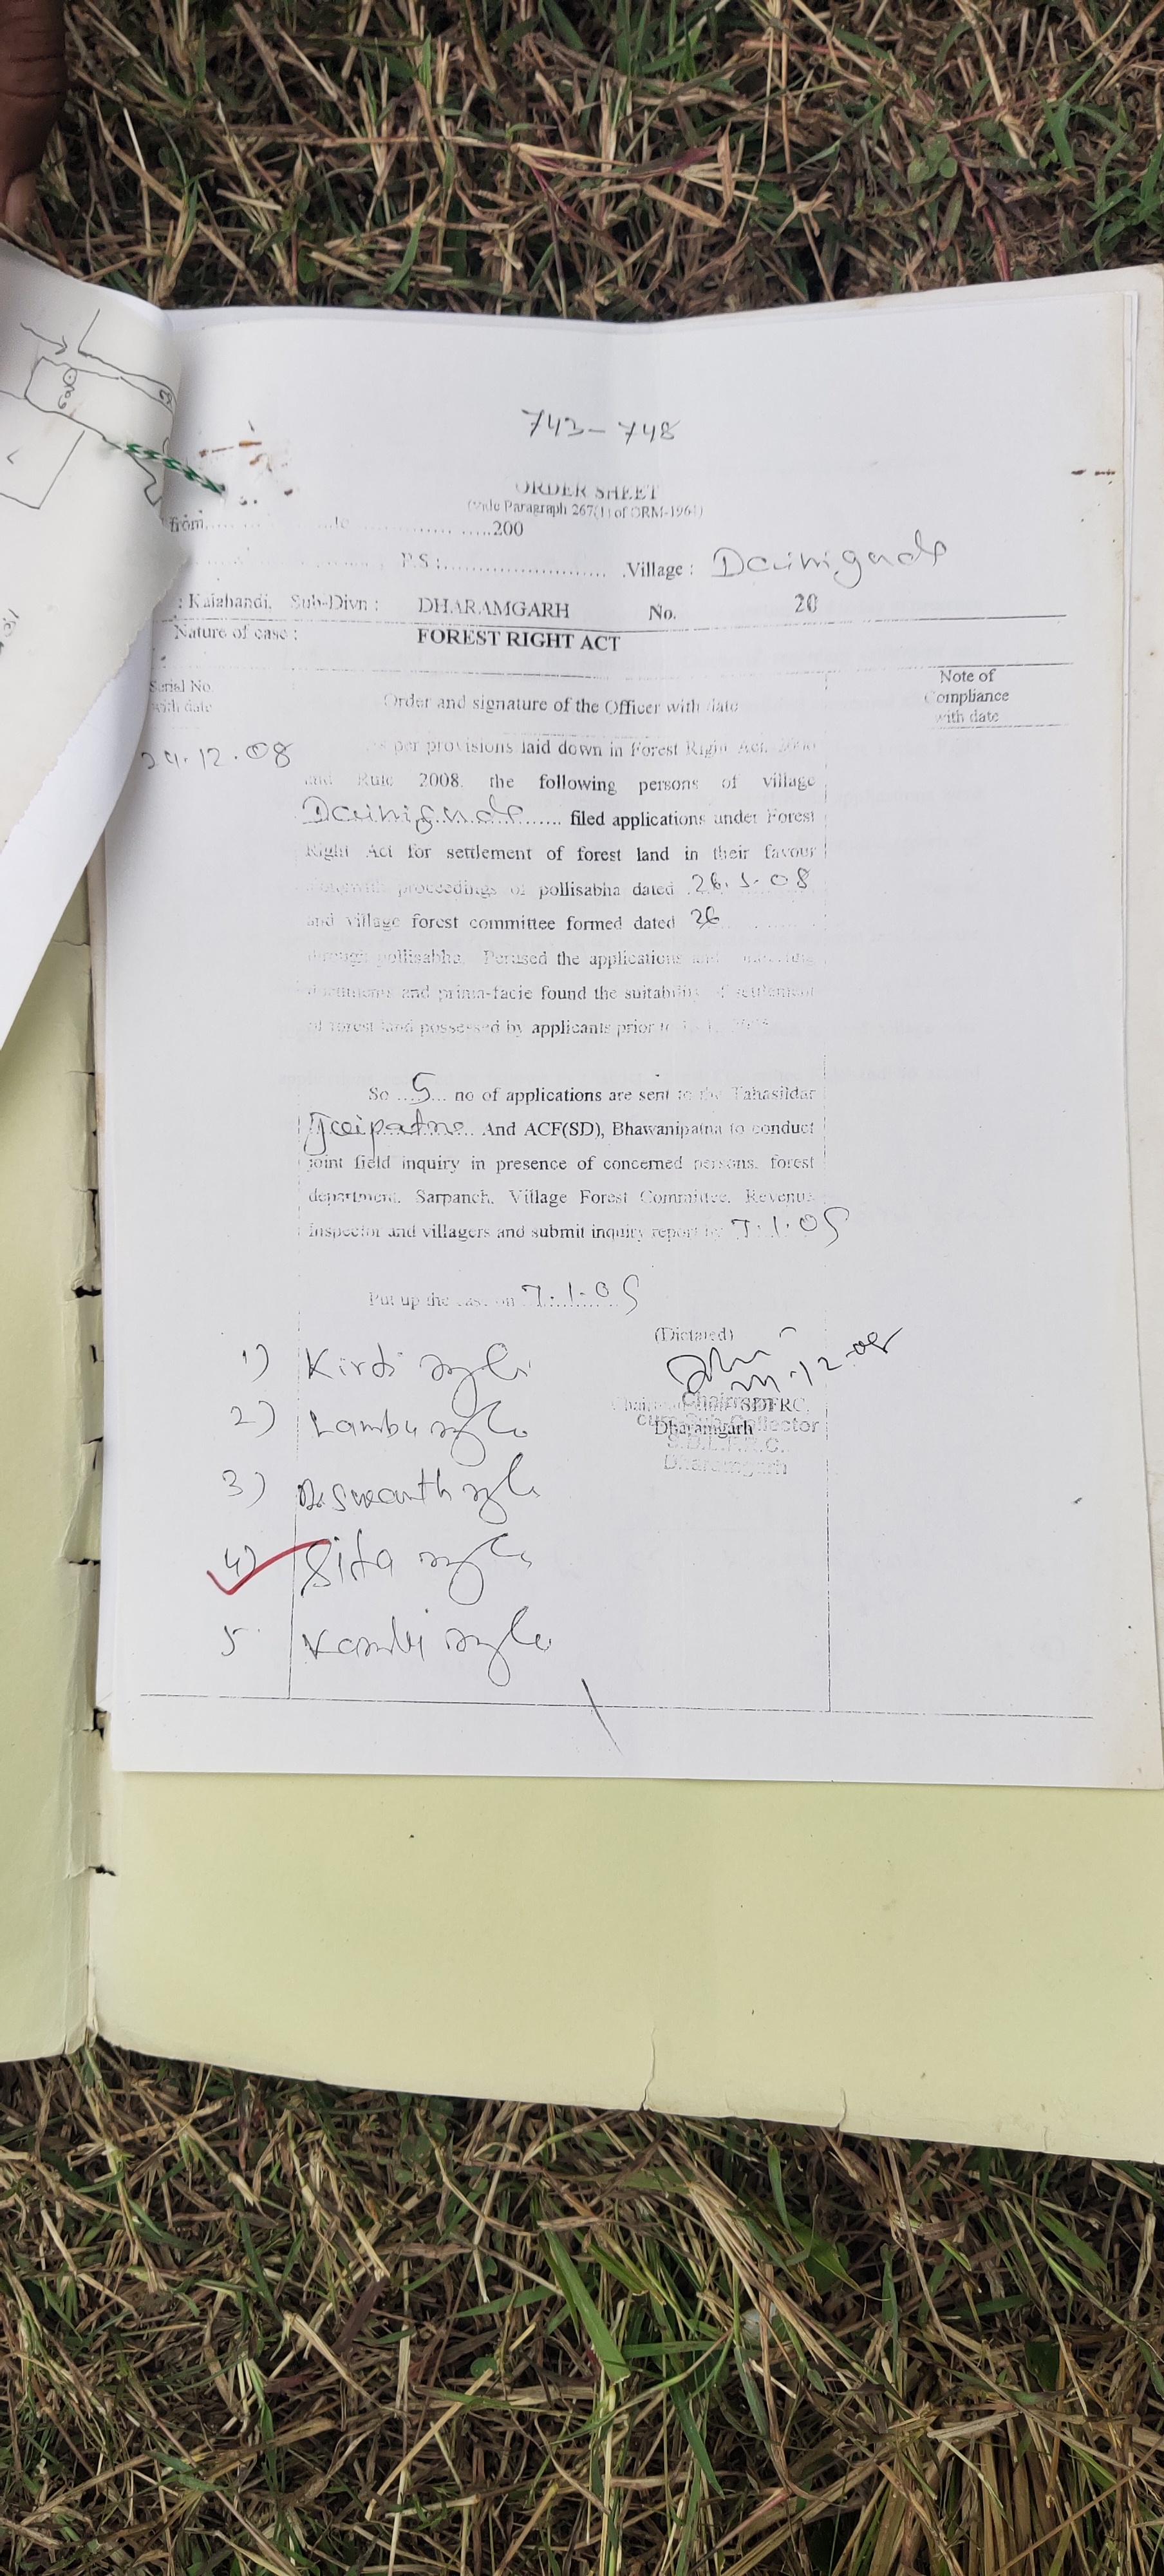 743-748
ORDER SHEET
(Vide Paragraph 267(1) of ORM-1964)
from.................to.....................200
P.S :........................... Village : Dainiguda
: Kalahandi, Sub-Divn : DHARAMGARH No. 20
Nature of case : FOREST RIGHT ACT
Serial No. with date
Order and signature of the Officer with date
Note of Compliance with date
24.12.08
As per provisions laid down in Forest Right Act, 2006
and Rule 2008, the following persons of village
Dainiguda filed applications under Forest
Right Act for settlement of forest land in their favour
alongwith proceedings of pollisabha dated 26.3.08
and village forest committee formed dated 26
through pollisabha. Perused the applications and
documents and prima-facie found the suitability of settlement
of forest land possessed by applicants prior to
So ...5... no of applications are sent to the Tahasildar
Jaipatna And ACF(SD), Bhawanipatna to conduct
joint field inquiry in presence of concerned persons, forest
department, Sarpanch, Village Forest Committee, Revenue
Inspector and villagers and submit inquiry report by 7.1.09
Put up the case on 7.1.09
(Dictated)
12.08
Chairman SDFRC,
Dharamgarh
Chairman
cum Sub-Collector
S.D.L.F.R.C.
Dharamgarh
1) Kirti
2) Lambu
3)
4) Sita
5